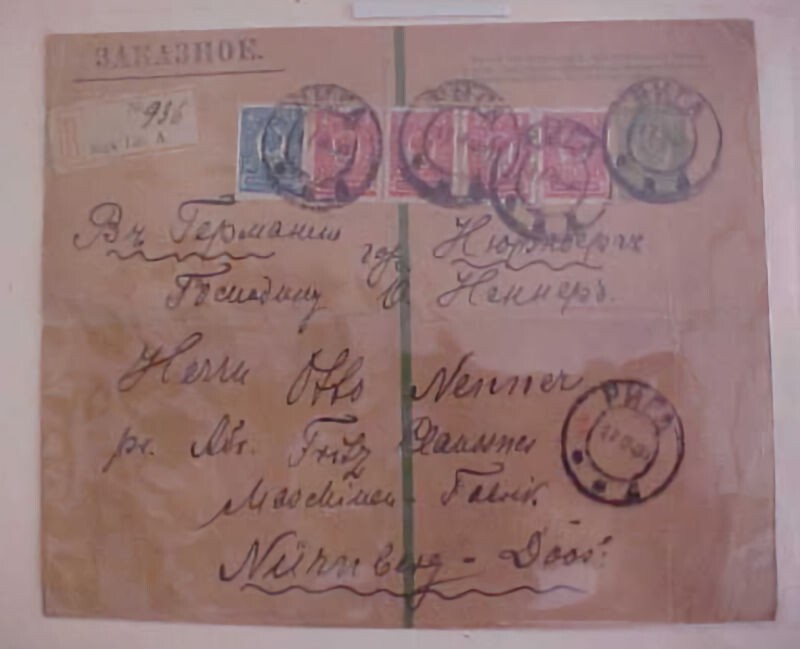 ЗАКАЗНОЕ.
№ 936
A.
РИГА
РИГА
РИГА
РИГА
Въ Германию
гор. Нюрнбергъ
Господину О. Неннеръ.
Herrn Otto Nenner
pr. Adr. Fritz
РИГА
Maschinen-Fabrik
Nürnberg-Doos.